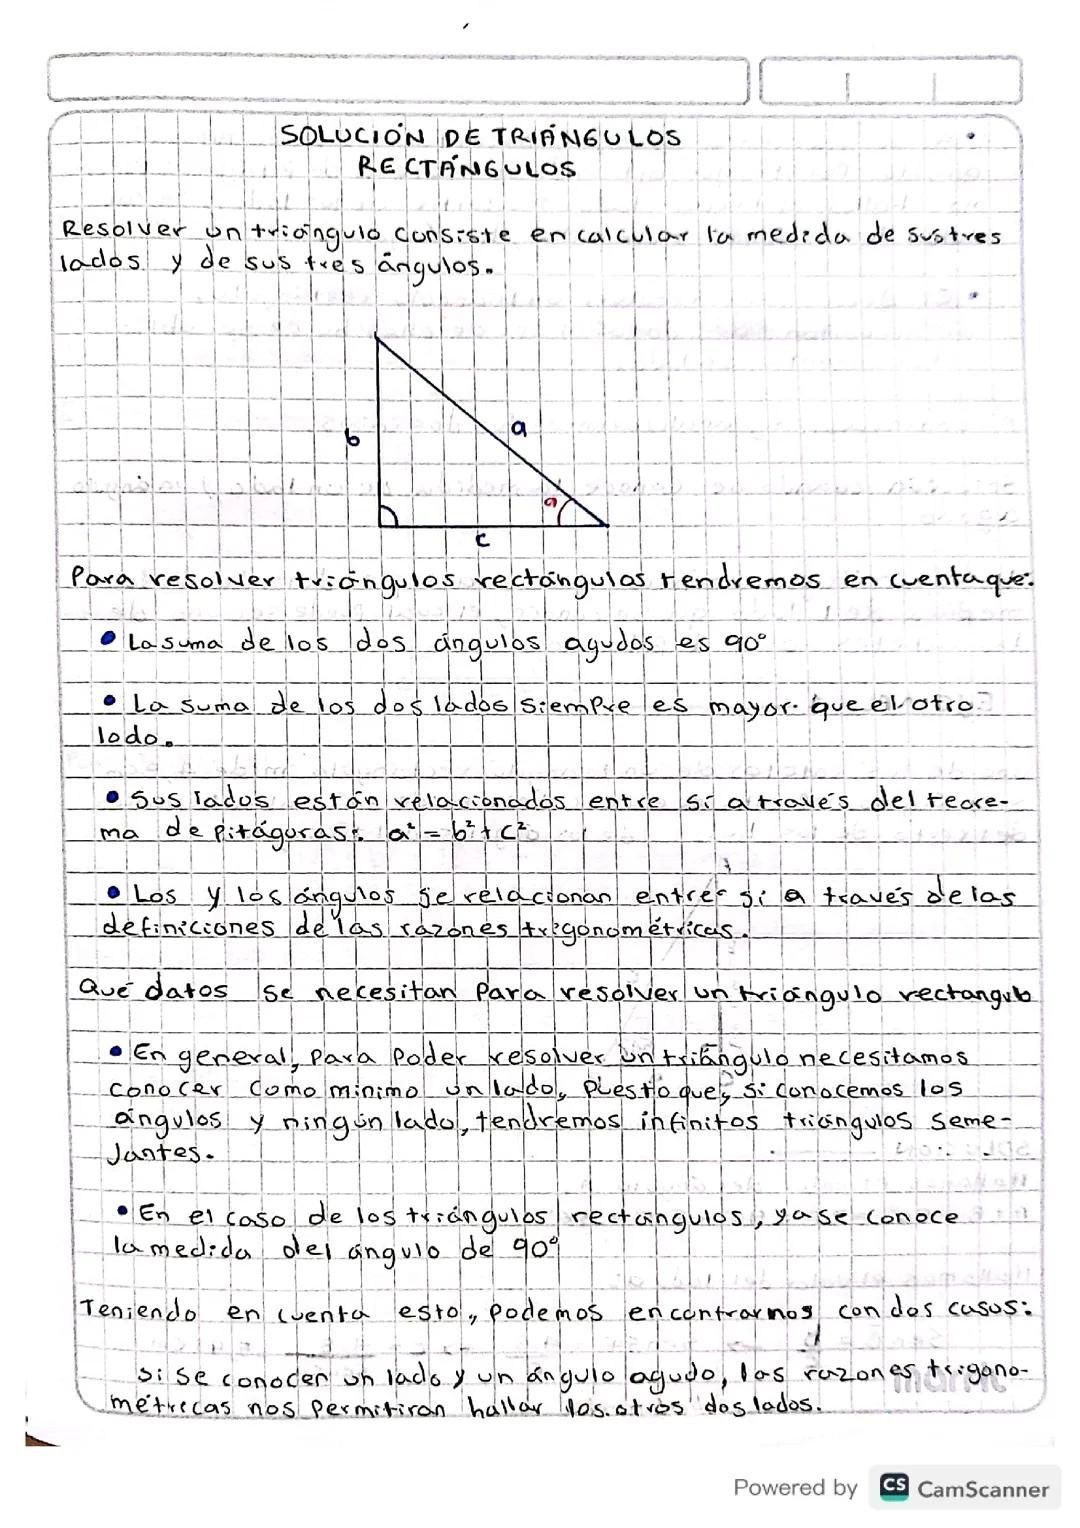 SOLUCIÓN DE TRIÁNGULOS
RECTÁNGULOS
Resolver un triángulo consiste en calcular la medida de sus tres
lados y de sus tres ángulos.
b
a
a
c
Para resolver triángulos rectángulos tendremos en cuenta que:
• La suma de los dos ángulos agudos es 90°
• La suma de los dos lados siempre es mayor que el otro
lado.
• Sus lados están relacionados entre sí a través del teore-
ma de Pitágoras: a² = b² + c²
• Los y los ángulos se relacionan entre si a través de las
definiciones de las razones trigonométricas.
Qué datos se necesitan para resolver un triángulo rectangulo
• En general, para poder resolver un triángulo necesitamos
conocer como minimo un lado, puesto que, si conocemos los
ángulos y ningún lado, tendremos infinitos triángulos seme-
Jantes.
• En el caso de los triángulos rectángulos, ya se conoce
la medida del ángulo de 90°
Teniendo en cuenta esto, podemos encontrarnos con dos casos:
si se conocen un lado y un ángulo agudo, las razones trigono-
métricas nos permitiran hallar los otros dos lados.
Powered by CS CamScanner